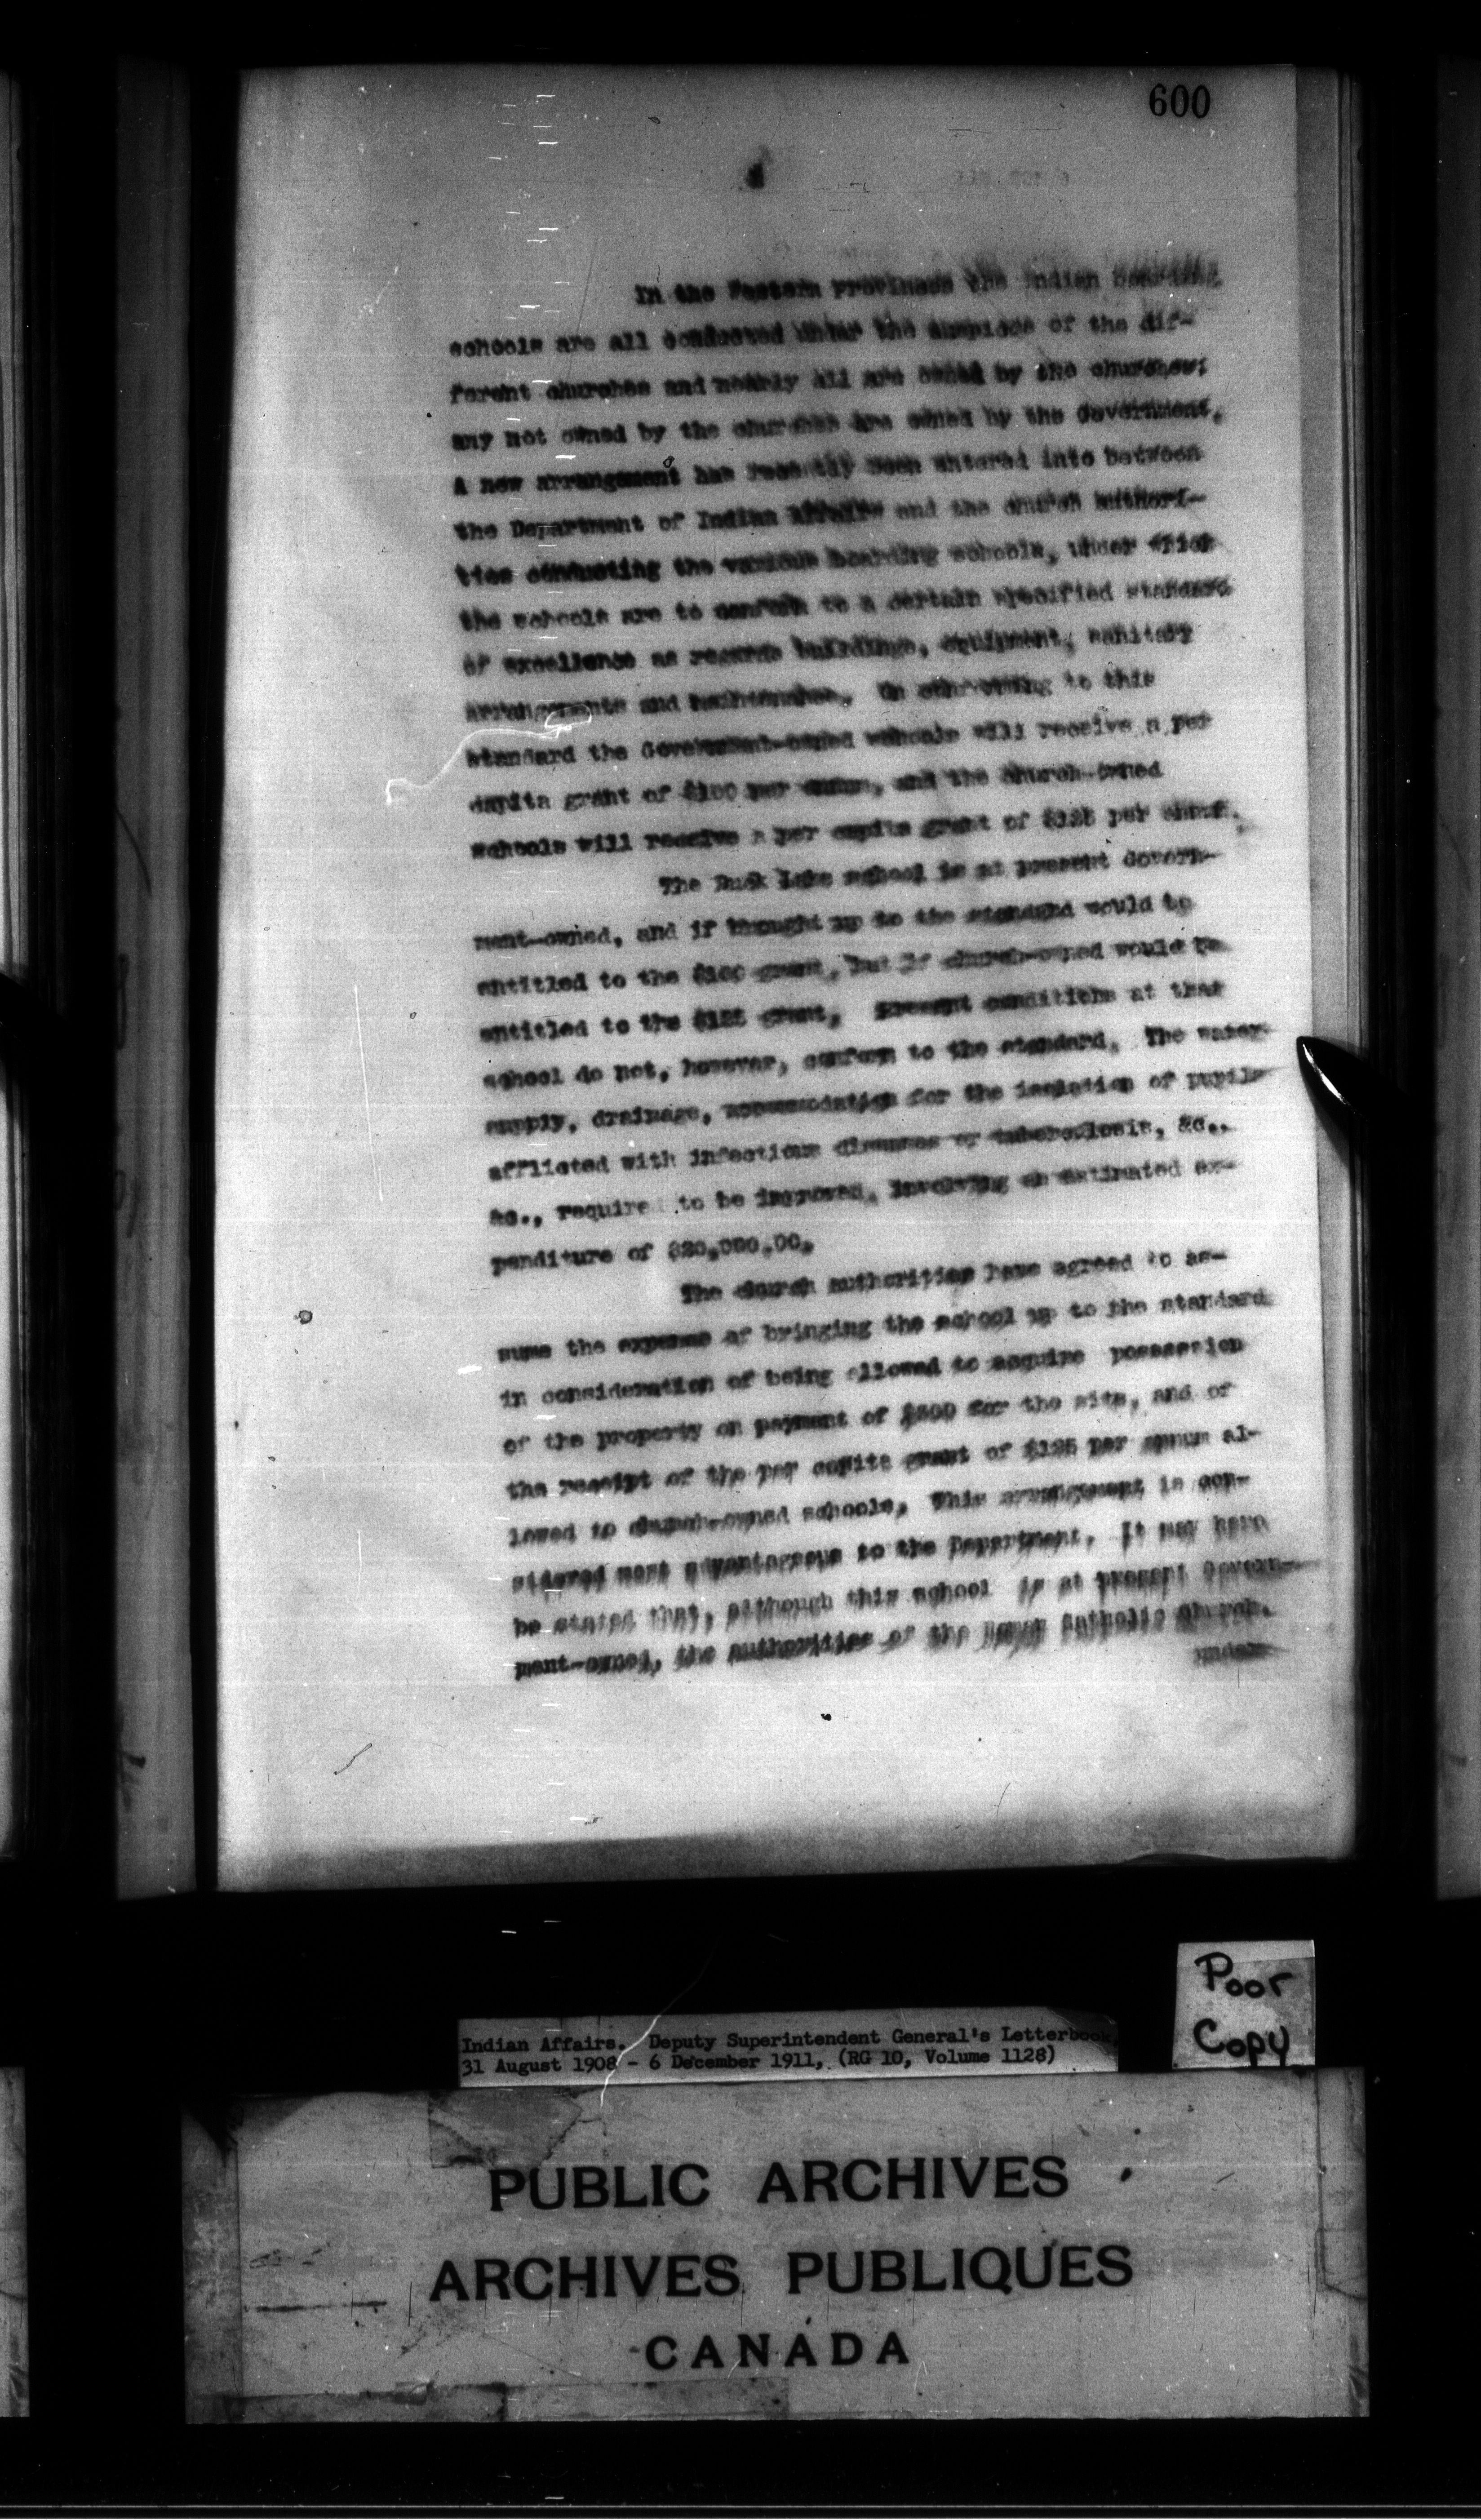 600
In the Western provinces the Indian boarding
schools are all conducted under the auspices of the dif-
ferent churches and nearly all are owned by the churches;
any not owned by the churches are owned by the Government.
A new arrangement has recently been entered into between
the Department of Indian Affairs and the church authori-
ties conducting the various boarding schools, under which
the schools are to conform to a certain specified standard
of excellence as regards buildings, equipment, sanitary
arrangements and maintenance. On conforming to this
standard the Government-owned schools will receive a per
capita grant of $100 per annum, and the church-owned
schools will receive a per capita grant of $125 per annum.
The Duck Lake school is at present Govern-
ment-owned, and if brought up to the standard would be
entitled to the $100 grant, but if church-owned would be
entitled to the $125 grant. Present conditions at that
school do not, however, conform to the standard. The water
supply, drainage, accommodation for the isolation of pupils
afflicted with infectious diseases or tuberculosis, &c.,
&c., require to be improved, involving an estimated ex-
penditure of $20,000.00.
The church authorities have agreed to as-
sume the expense of bringing the school up to the standard
in consideration of being allowed to acquire possession
of the property on payment of $500 for the site, and of
the receipt of the per capita grant of $125 per annum al-
lowed to church-owned schools. This arrangement is con-
sidered most advantageous to the Department. It may here
be stated that, although this school is at present Govern-
ment-owned, the authorities of the Roman Catholic Church,
under
Poor
Copy
Indian Affairs. Deputy Superintendent General's Letterbook
31 August 1908 - 6 December 1911, (RG 10, Volume 1128)
PUBLIC ARCHIVES
ARCHIVES PUBLIQUES
CANADA